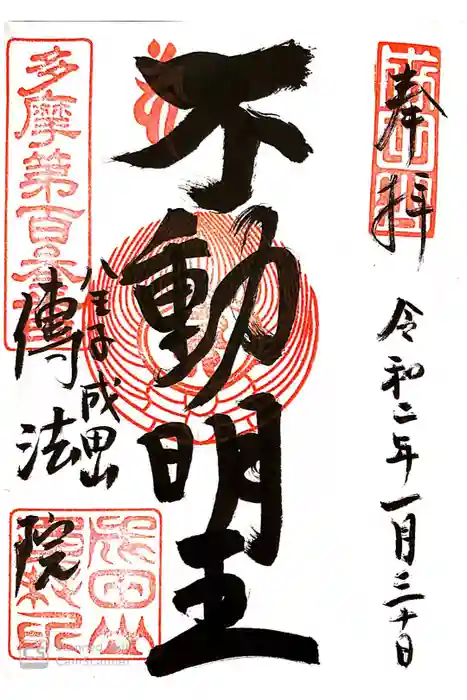 奉拝
令和二年一月三十日
不動明王
多摩第百
八王子成田山
傳法院
CamScanner